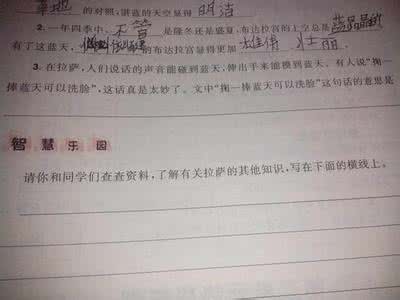 草地 的对照,湛蓝的天空显得 明洁
2. 一年四季中,不管 是隆冬还是盛夏,布达拉宫的上空总是 蓝晶晶的
有了这蓝天, 的布达拉宫显得更加 雄伟 壮丽
3. 在拉萨,人们说话的声音能碰到蓝天,伸出手来能摸到蓝天。有人说“掬一
捧蓝天可以洗脸”,这话真是太妙了。文中“掬一捧蓝天可以洗脸”这句话的意思是
智慧乐园
请你和同学们查查资料,了解有关拉萨的其他知识,写在下面的横线上。